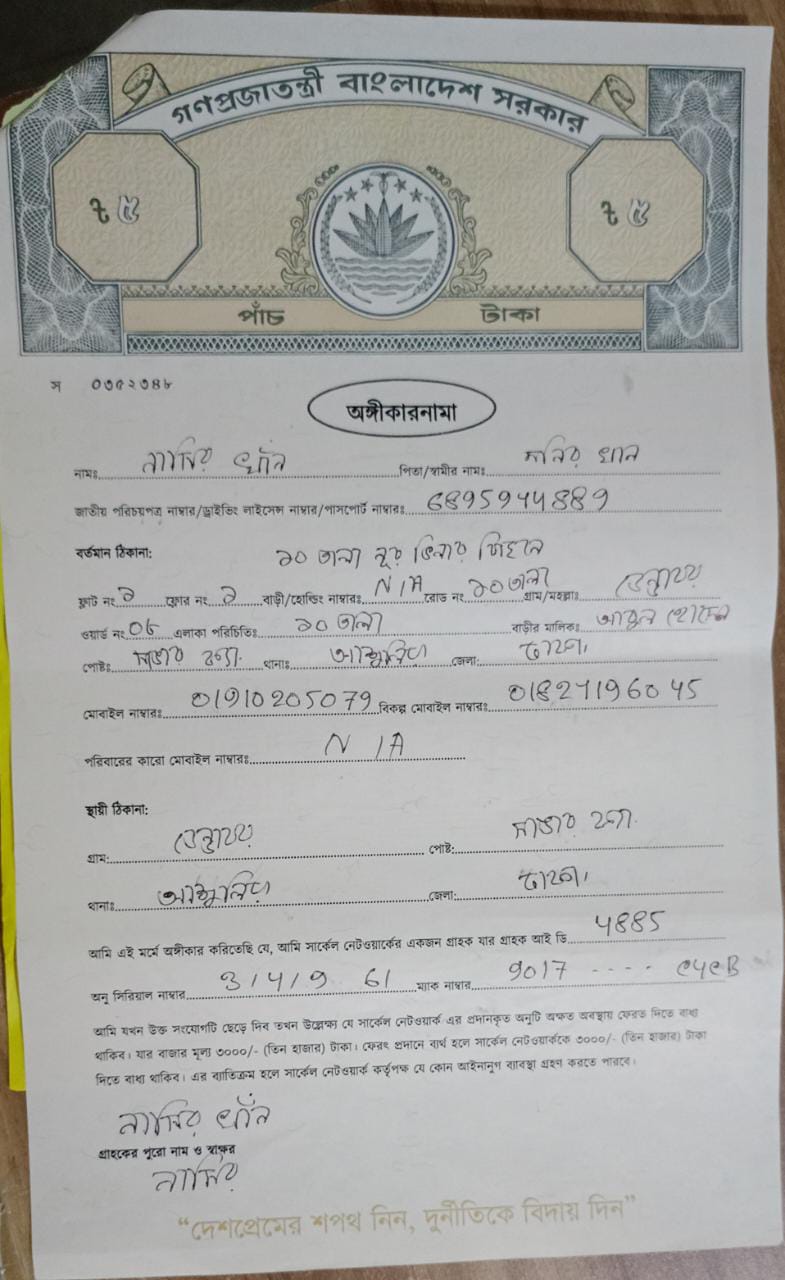 গণপ্রজাতন্ত্রী বাংলাদেশ সরকার
৳ ৫ ৳ ৫
পাঁচ টাকা
স ০৩৫২৩৪৮
অঙ্গীকারনামা
নামঃ নাসির খাঁন পিতা/স্বামীর নামঃ মনির খান
জাতীয় পরিচয়পত্র নাম্বার/ড্রাইভিং লাইসেন্স নাম্বার/পাসপোর্ট নাম্বারঃ 6895944889
বর্তমান ঠিকানা: ১০ তালা নূর
ফ্লাট নং ১ ফ্লোর নং ১ বাড়ী/হোল্ডিং নাম্বারঃ N/A রোড নং ১০ তালা গ্রাম/মহল্লাঃ
ওয়ার্ড নং 06 এলাকা পরিচিতিঃ ১০ তালা বাড়ীর মালিকঃ আবুল হোসেন
পোষ্টঃ থানাঃ আশুলিয়া জেলা: ঢাকা।
মোবাইল নাম্বারঃ 01910205079 বিকল্প মোবাইল নাম্বারঃ
পরিবারের কারো মোবাইল নাম্বারঃ N/A
স্থায়ী ঠিকানা:
গ্রাম: পোষ্ট:
থানাঃ আশুলিয়া জেলা: ঢাকা।
আমি এই মর্মে অঙ্গীকার করিতেছি যে, আমি সার্কেল নেটওয়ার্কের একজন গ্রাহক যার গ্রাহক আই ডি 4885
অনু সিরিয়াল নাম্বার ম্যাক নাম্বার 9017
আমি যখন উক্ত সংযোগটি ছেড়ে দিব তখন উল্লেক্ষ্য যে সার্কেল নেটওয়ার্ক এর প্রদানকৃত অনুটি অক্ষত অবস্থায় ফেরত দিতে বাধ্য
থাকিব। যার বাজার মূল্য ৩০০০/- (তিন হাজার) টাকা। ফেরৎ প্রদানে ব্যর্থ হলে সার্কেল নেটওয়ার্ককে ৩০০০/- (তিন হাজার) টাকা
দিতে বাধ্য থাকিব। এর ব্যতিক্রম হলে সার্কেল নেটওয়ার্ক কর্তৃপক্ষ যে কোন আইনানুগ ব্যাবস্থা গ্রহণ করতে পারবে।
নাসির খাঁন
গ্রাহকের পুরো নাম ও স্বাক্ষর
নাসির
“দেশপ্রেমের শপথ নিন, দুর্নীতিকে বিদায় দিন”